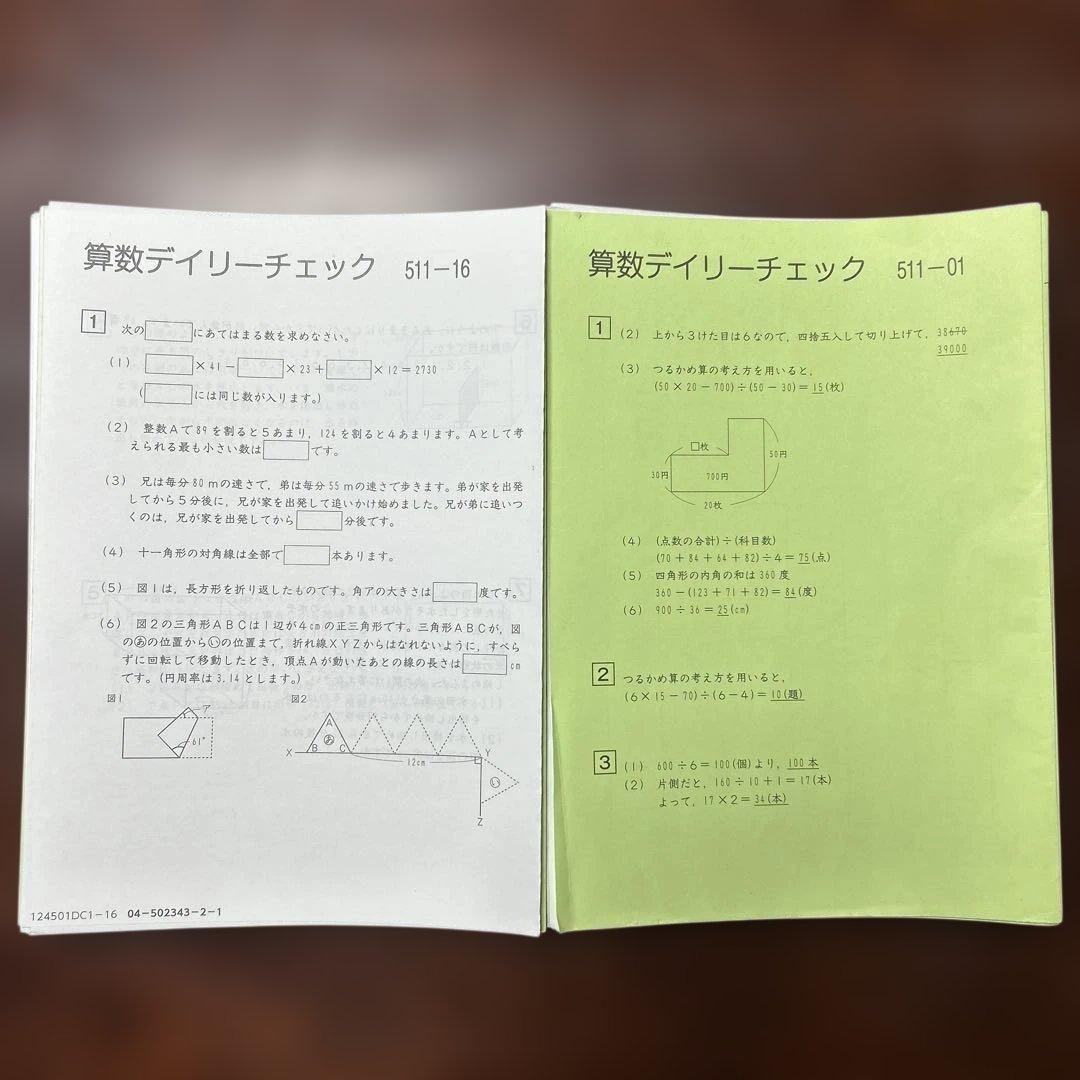 算数デイリーチェック 511-16
1 次の□にあてはまる数を求めなさい。
(1) □×41-□×23+□×12=2730
(□には同じ数が入ります。)
(2) 整数Aで89を割ると5あまり，124を割ると4あまります。Aとして考
えられる最も小さい数は□です。
(3) 兄は毎分80mの速さで，弟は毎分55mの速さで歩きます。弟が家を出発
してから5分後に，兄が家を出発して追いかけ始めました。兄が弟に追いつ
くのは，兄が家を出発してから□分後です。
(4) 十一角形の対角線は全部で□本あります。
(5) 図1は，長方形を折り返したものです。角アの大きさは□度です。
(6) 図2の三角形ABCは1辺が4cmの正三角形です。三角形ABCが，図
のあの位置からいの位置まで，折れ線XYZからはなれないように，すべら
ずに回転して移動したとき，頂点Aが動いたあとの線の長さは□cm
です。(円周率は3.14とします。)
図1
ア
61°
図2
A
あ
X B C Y
12cm
い
Z
124501DC1-16 04-502343-2-1
算数デイリーチェック 511-01
1 (2) 上から3けた目は6なので，四捨五入して切り上げて，38670
39000
(3) つるかめ算の考え方を用いると，
(50×20-700)÷(50-30)=15(枚)
□枚
50円
30円
700円
20枚
(4) (点数の合計)÷(科目数)
(70+84+64+82)÷4=75(点)
(5) 四角形の内角の和は360度
360-(123+71+82)=84(度)
(6) 900÷36=25(cm)
2 つるかめ算の考え方を用いると，
(6×15-70)÷(6-4)=10(題)
3 (1) 600÷6=100(個)より，100本
(2) 片側だと，160÷10+1=17(本)
よって，17×2=34(本)